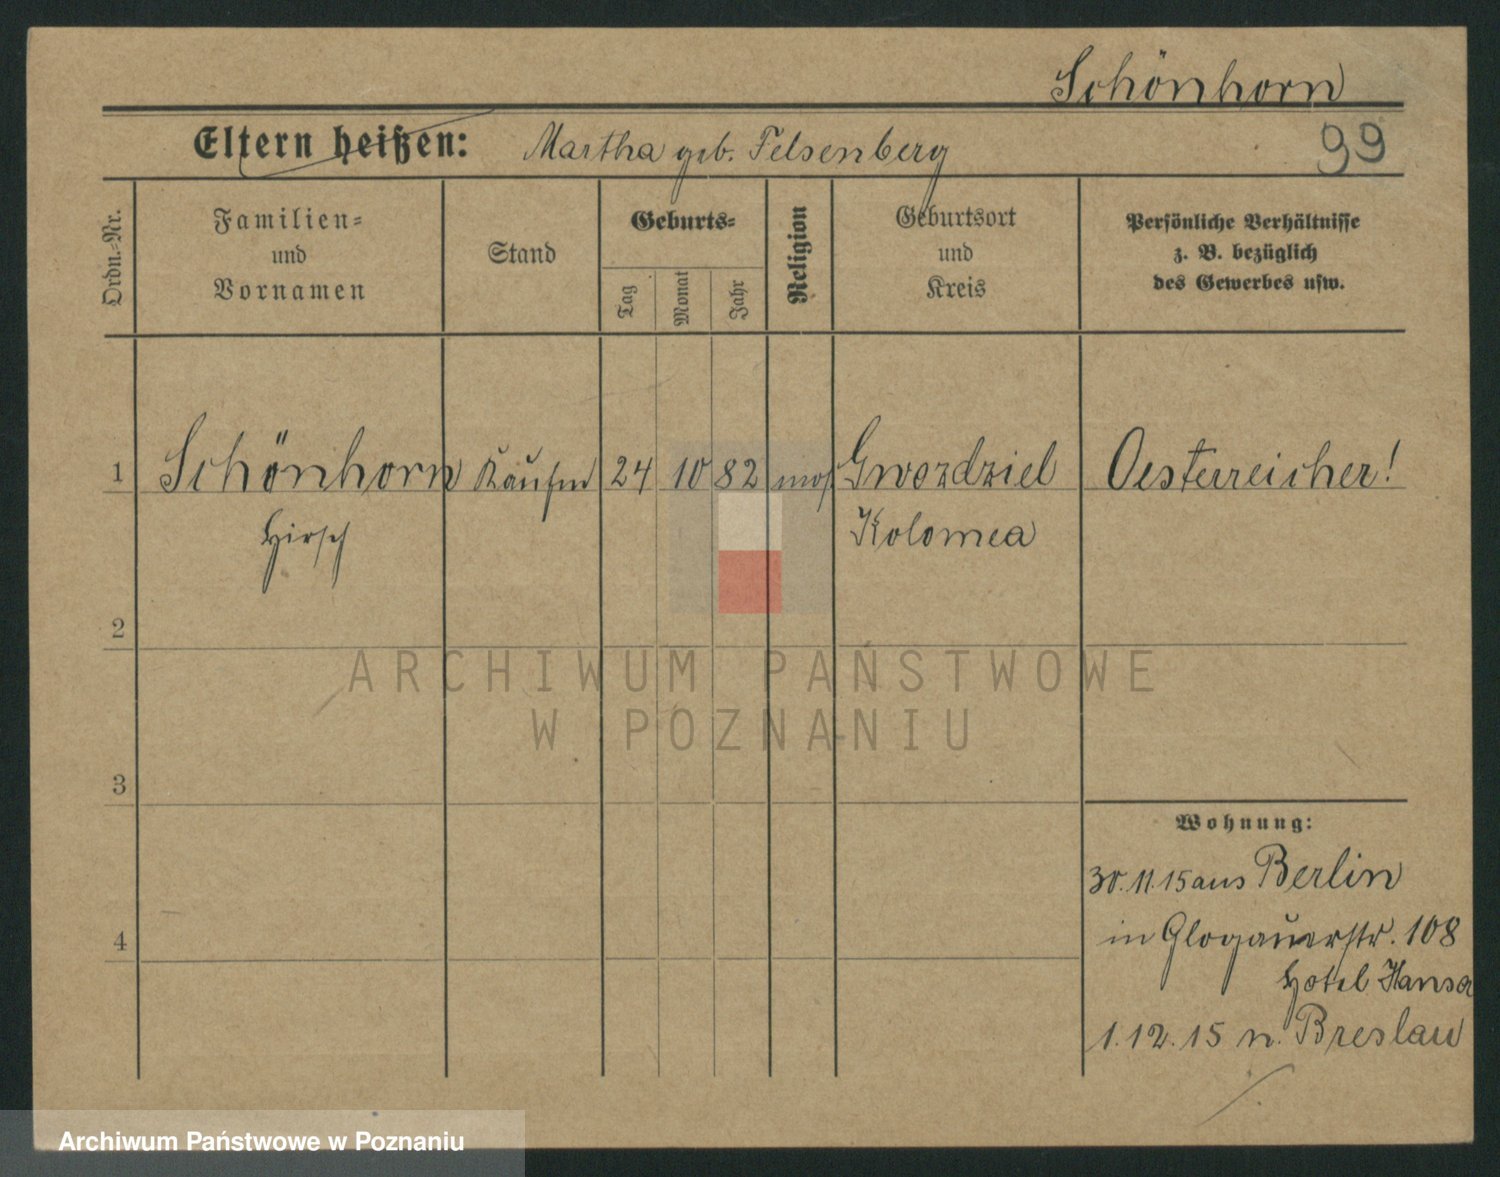 Schönhorn
Eltern heißen: Martha geb. Felsenberg
99
Ordn.-Nr.
Familien-
und
Vornamen
Stand
Geburts-
Tag
Monat
Jahr
Religion
Geburtsort
und
Kreis
Persönliche Verhältnisse
z. B. bezüglich
des Gewerbes usw.
1 Schönhorn Kaufm 24 10 82 mos Gwozdziel Oesterreicher!
Hirsch Kolomea
2
ARCHIWUM PAŃSTWOWE
W POZNANIU
3
Wohnung:
30.11.15 aus Berlin
in Glogauerstr. 108
4
Hotel Hansa
1.12.15 n. Breslau
Archiwum Państwowe w Poznaniu